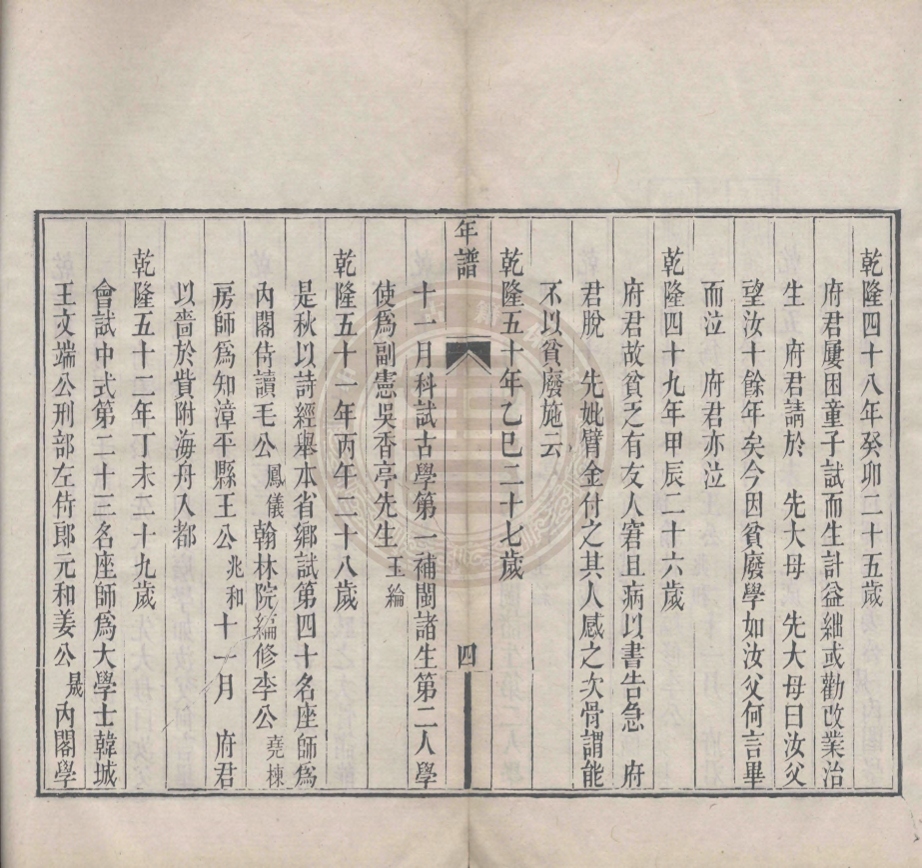 乾隆四十八年癸卯二十五歲
府君屢困童子試而生計益絀或勸改業治
生　府君請於　先大母　先大母曰汝父
望汝十餘年矣今因貧廢學如汝父何言畢
而泣　府君亦泣
乾隆四十九年甲辰二十六歲
府君故貧乏有友人窘且病以書告急　府
君脫　先妣臂金付之其人感之次骨謂能
不以貧廢施云
乾隆五十年乙巳二十七歲
年譜
四
十一月科試古學第一補閩諸生第二人學
使爲副憲吳香亭先生玉綸
乾隆五十一年丙午二十八歲
是秋以詩經舉本省鄉試第四十名座師爲
內閣侍讀毛公鳳儀翰林院編修李公堯棟
房師爲知漳平縣王公兆和十一月　府君
以嗇於貲附海舟入都
乾隆五十二年丁未二十九歲
會試中式第二十三名座師爲大學士韓城
王文端公刑部左侍郎元和姜公晟內閣學